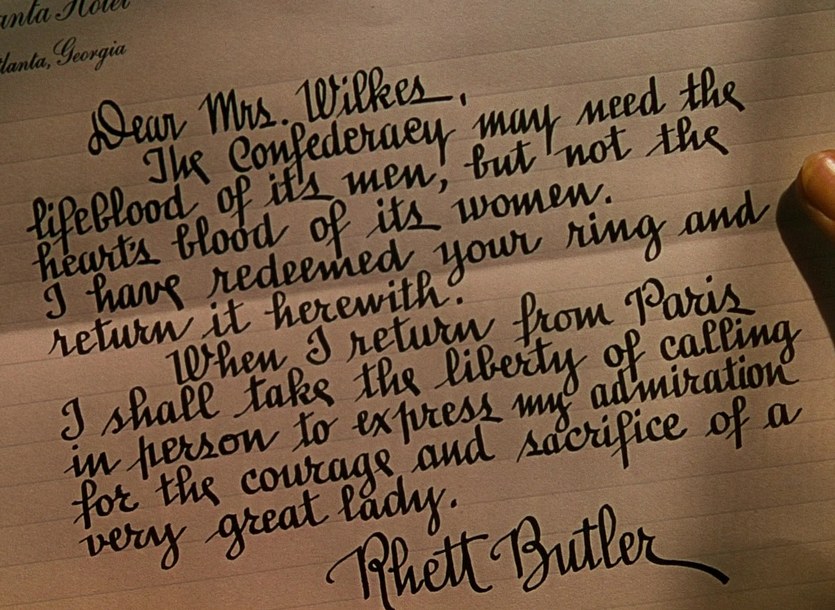 anta Hotel
lanta, Georgia
Dear Mrs. Wilkes,
The Confederacy may need the
lifeblood of its men, but not the
heart's blood of its women.
I have redeemed your ring and
return it herewith.
When I return from Paris
I shall take the liberty of calling
in person to express my admiration
for the courage and sacrifice of a
very great lady.
Rhett Butler